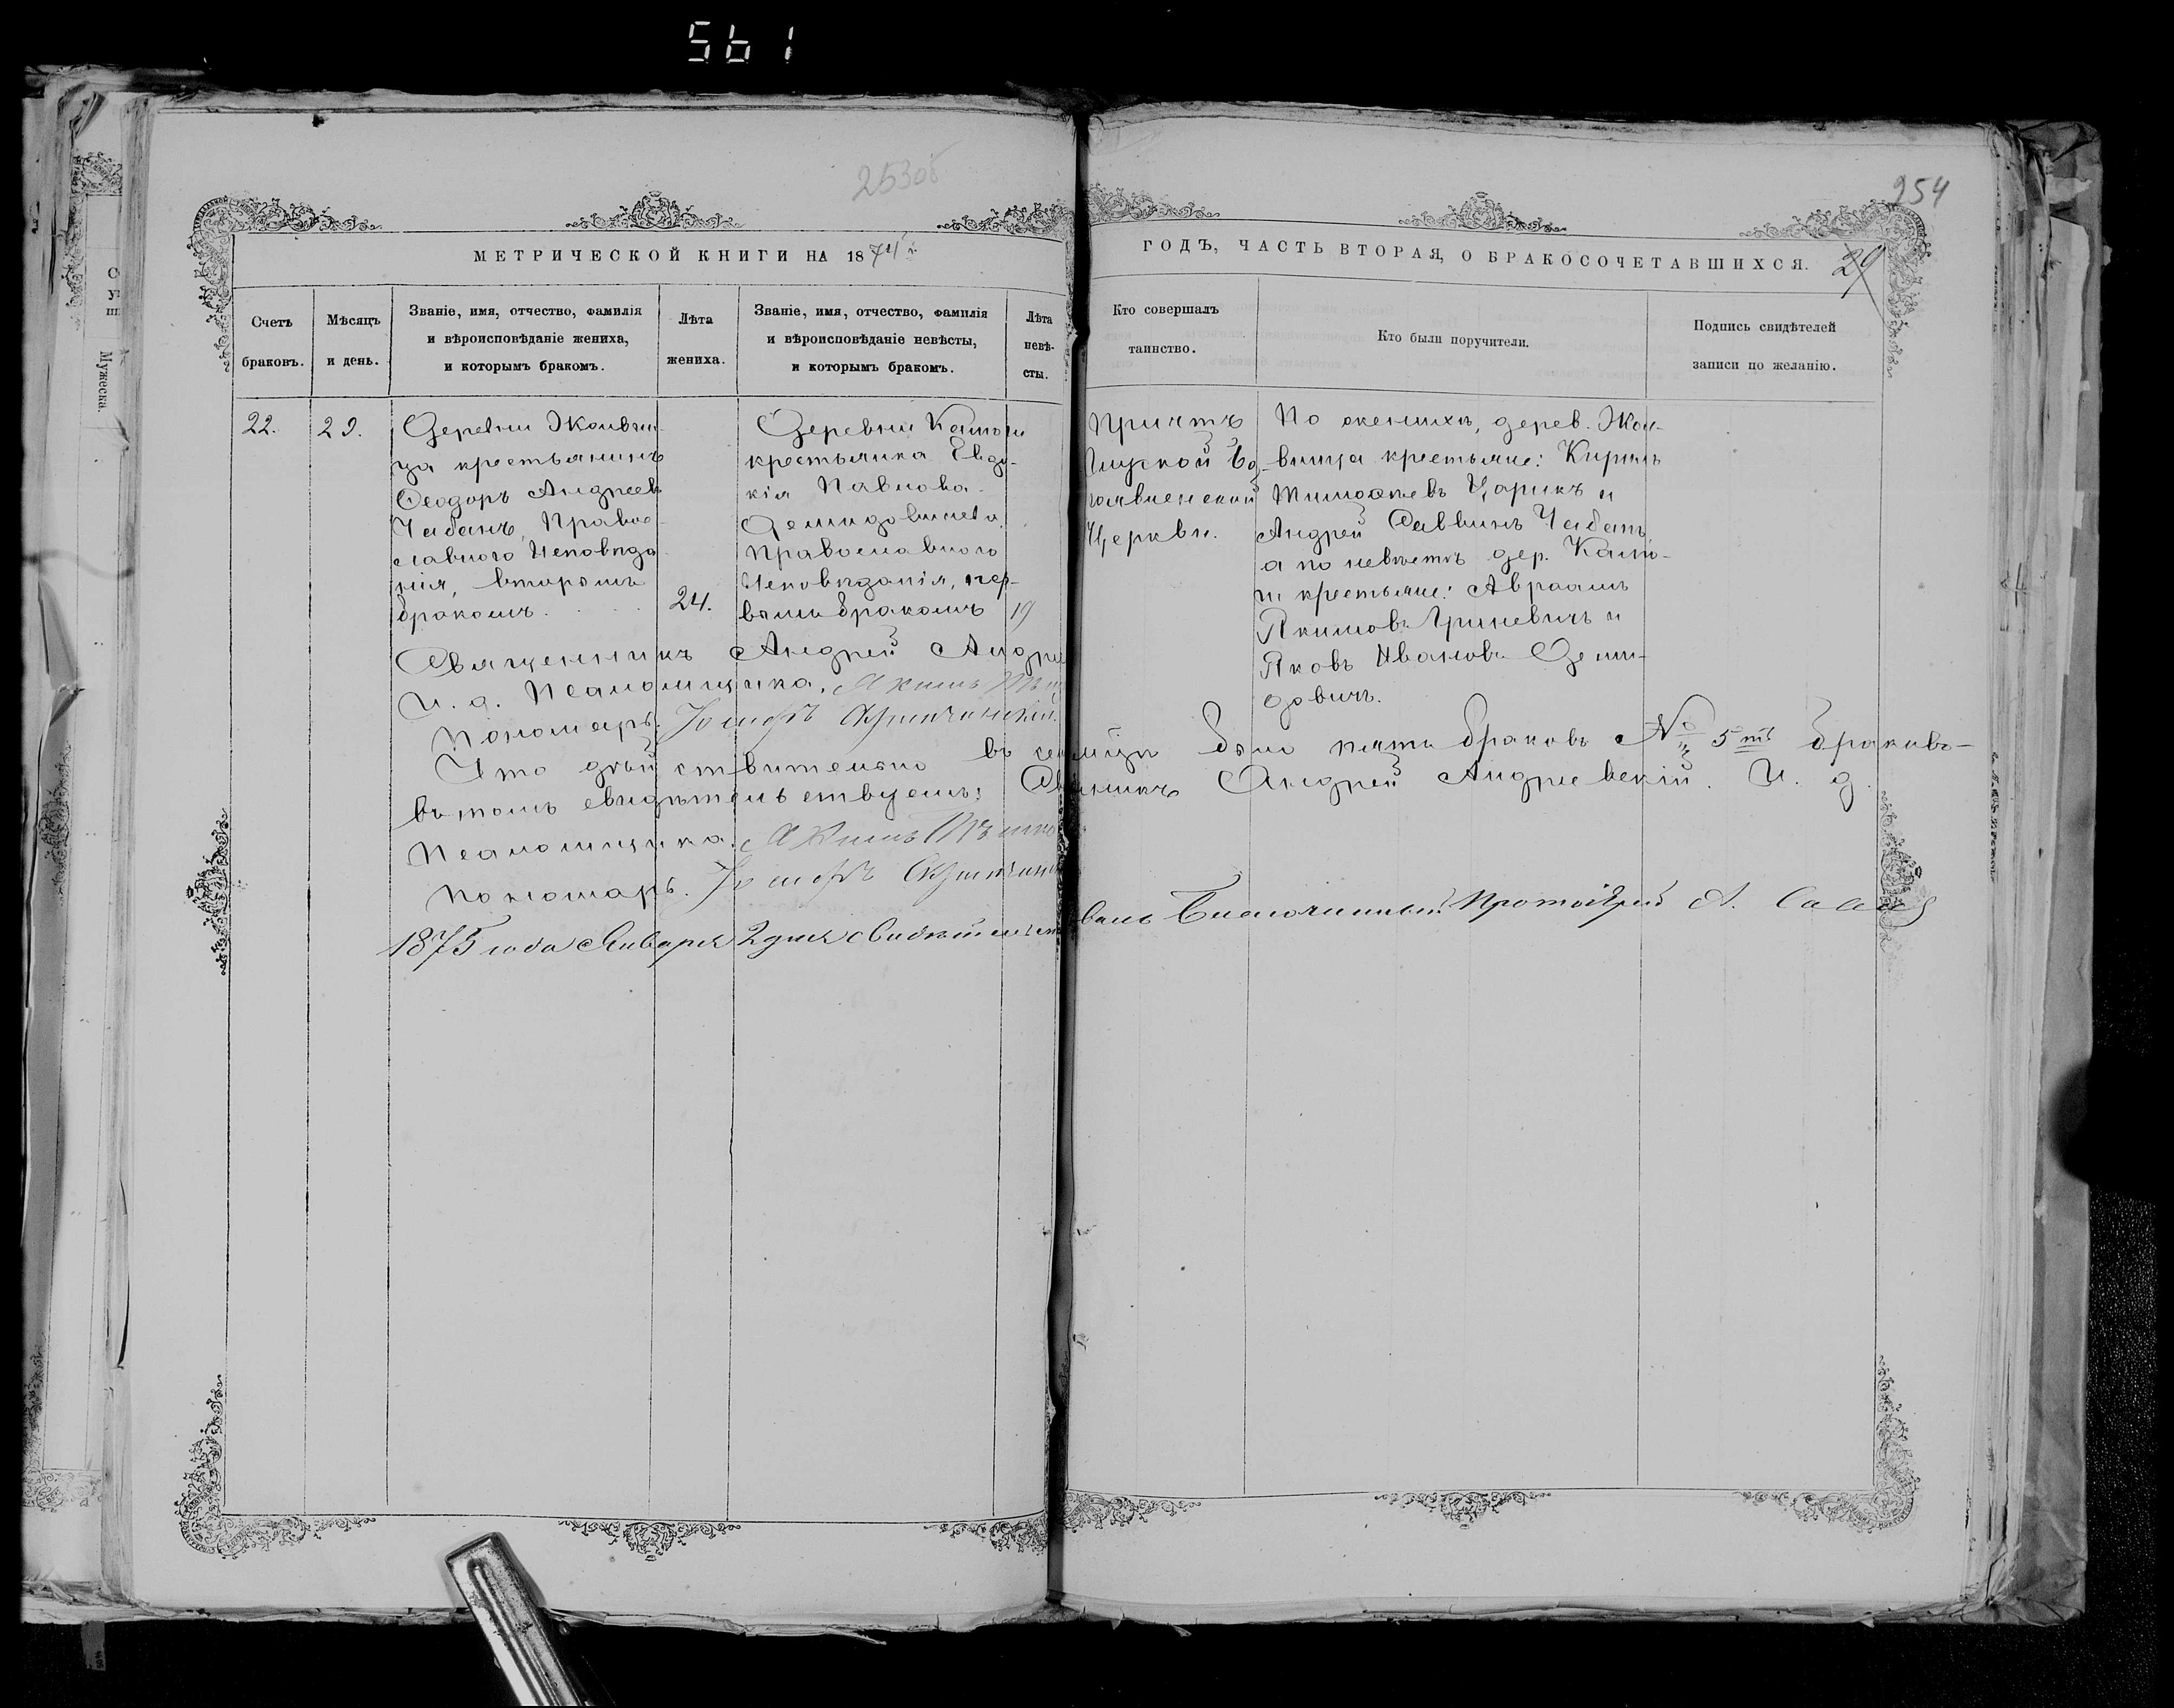 561
253об
254
МЕТРИЧЕСКОЙ КНИГИ НА 1874 г.
ГОДЪ, ЧАСТЬ ВТОРАЯ, О БРАКОСОЧЕТАВШИХСЯ.
29
Счетъ
браковъ.
Мѣсяцъ
и день.
Званіе, имя, отчество, фамилія
и вѣроисповѣданіе жениха,
и которымъ бракомъ.
Лѣта
жениха.
Званіе, имя, отчество, фамилія
и вѣроисповѣданіе невѣсты,
и которымъ бракомъ.
Лѣта
невѣ-
сты.
Кто совершалъ
таинство.
Кто были поручители.
Подпись свидѣтелей
записи по желанію.
Мужеска.
22.
29.
Деревни Жолвин-
ца крестьянинъ
Ѳеодоръ Андреевъ
Чабанъ, Правос-
лавного Исповѣда
нія, вторымъ
бракомъ.
24.
Деревни
крестьянка Евдо-
кія Павлова
Демидовичева
Православного
Исповѣданія, пер-
вымъ бракомъ
19
Причтъ
Глуской Бо-
гоявленской
Церкви.
По женихѣ, дерев. Жол-
винца крестьяне: Кирилъ
Тимоѳеевъ Царикъ и
Андрей Саввинъ Чабанъ,
а по невѣстѣ дер.
крестьяне: Авраамъ
Якимовъ Гриневичъ и
Яковъ Ивановъ Деми-
довичъ.
Священникъ Андрей
И. д. Псаломщика, Якимъ
Пономарь. Іосифъ
Что дѣйствительно въ было пять браковъ № 5ть браковъ
въ томъ свидѣтельствуемъ: Андрей Андріевскій. И. д.
Псаломщика. Якимъ
Пономарь. Іосифъ
1875 года Января 2 дня Благочинный Протоіерей А.